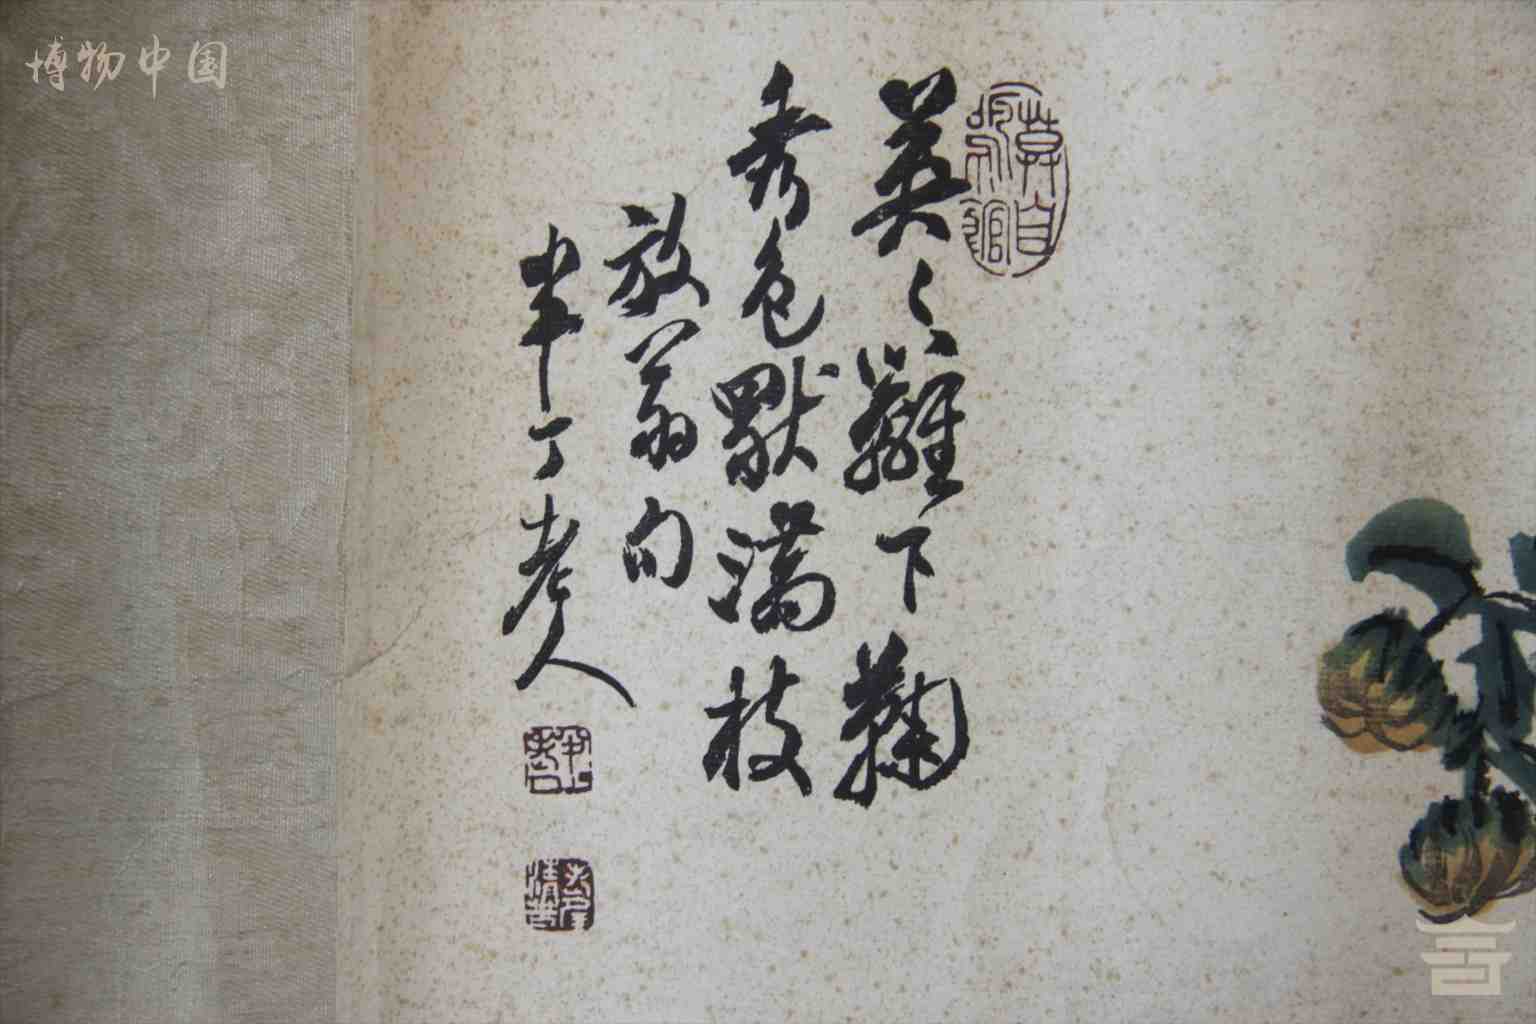 博物中国
英〻蘺下鞠
秀色黙滿枝
放翁句
半丁老人